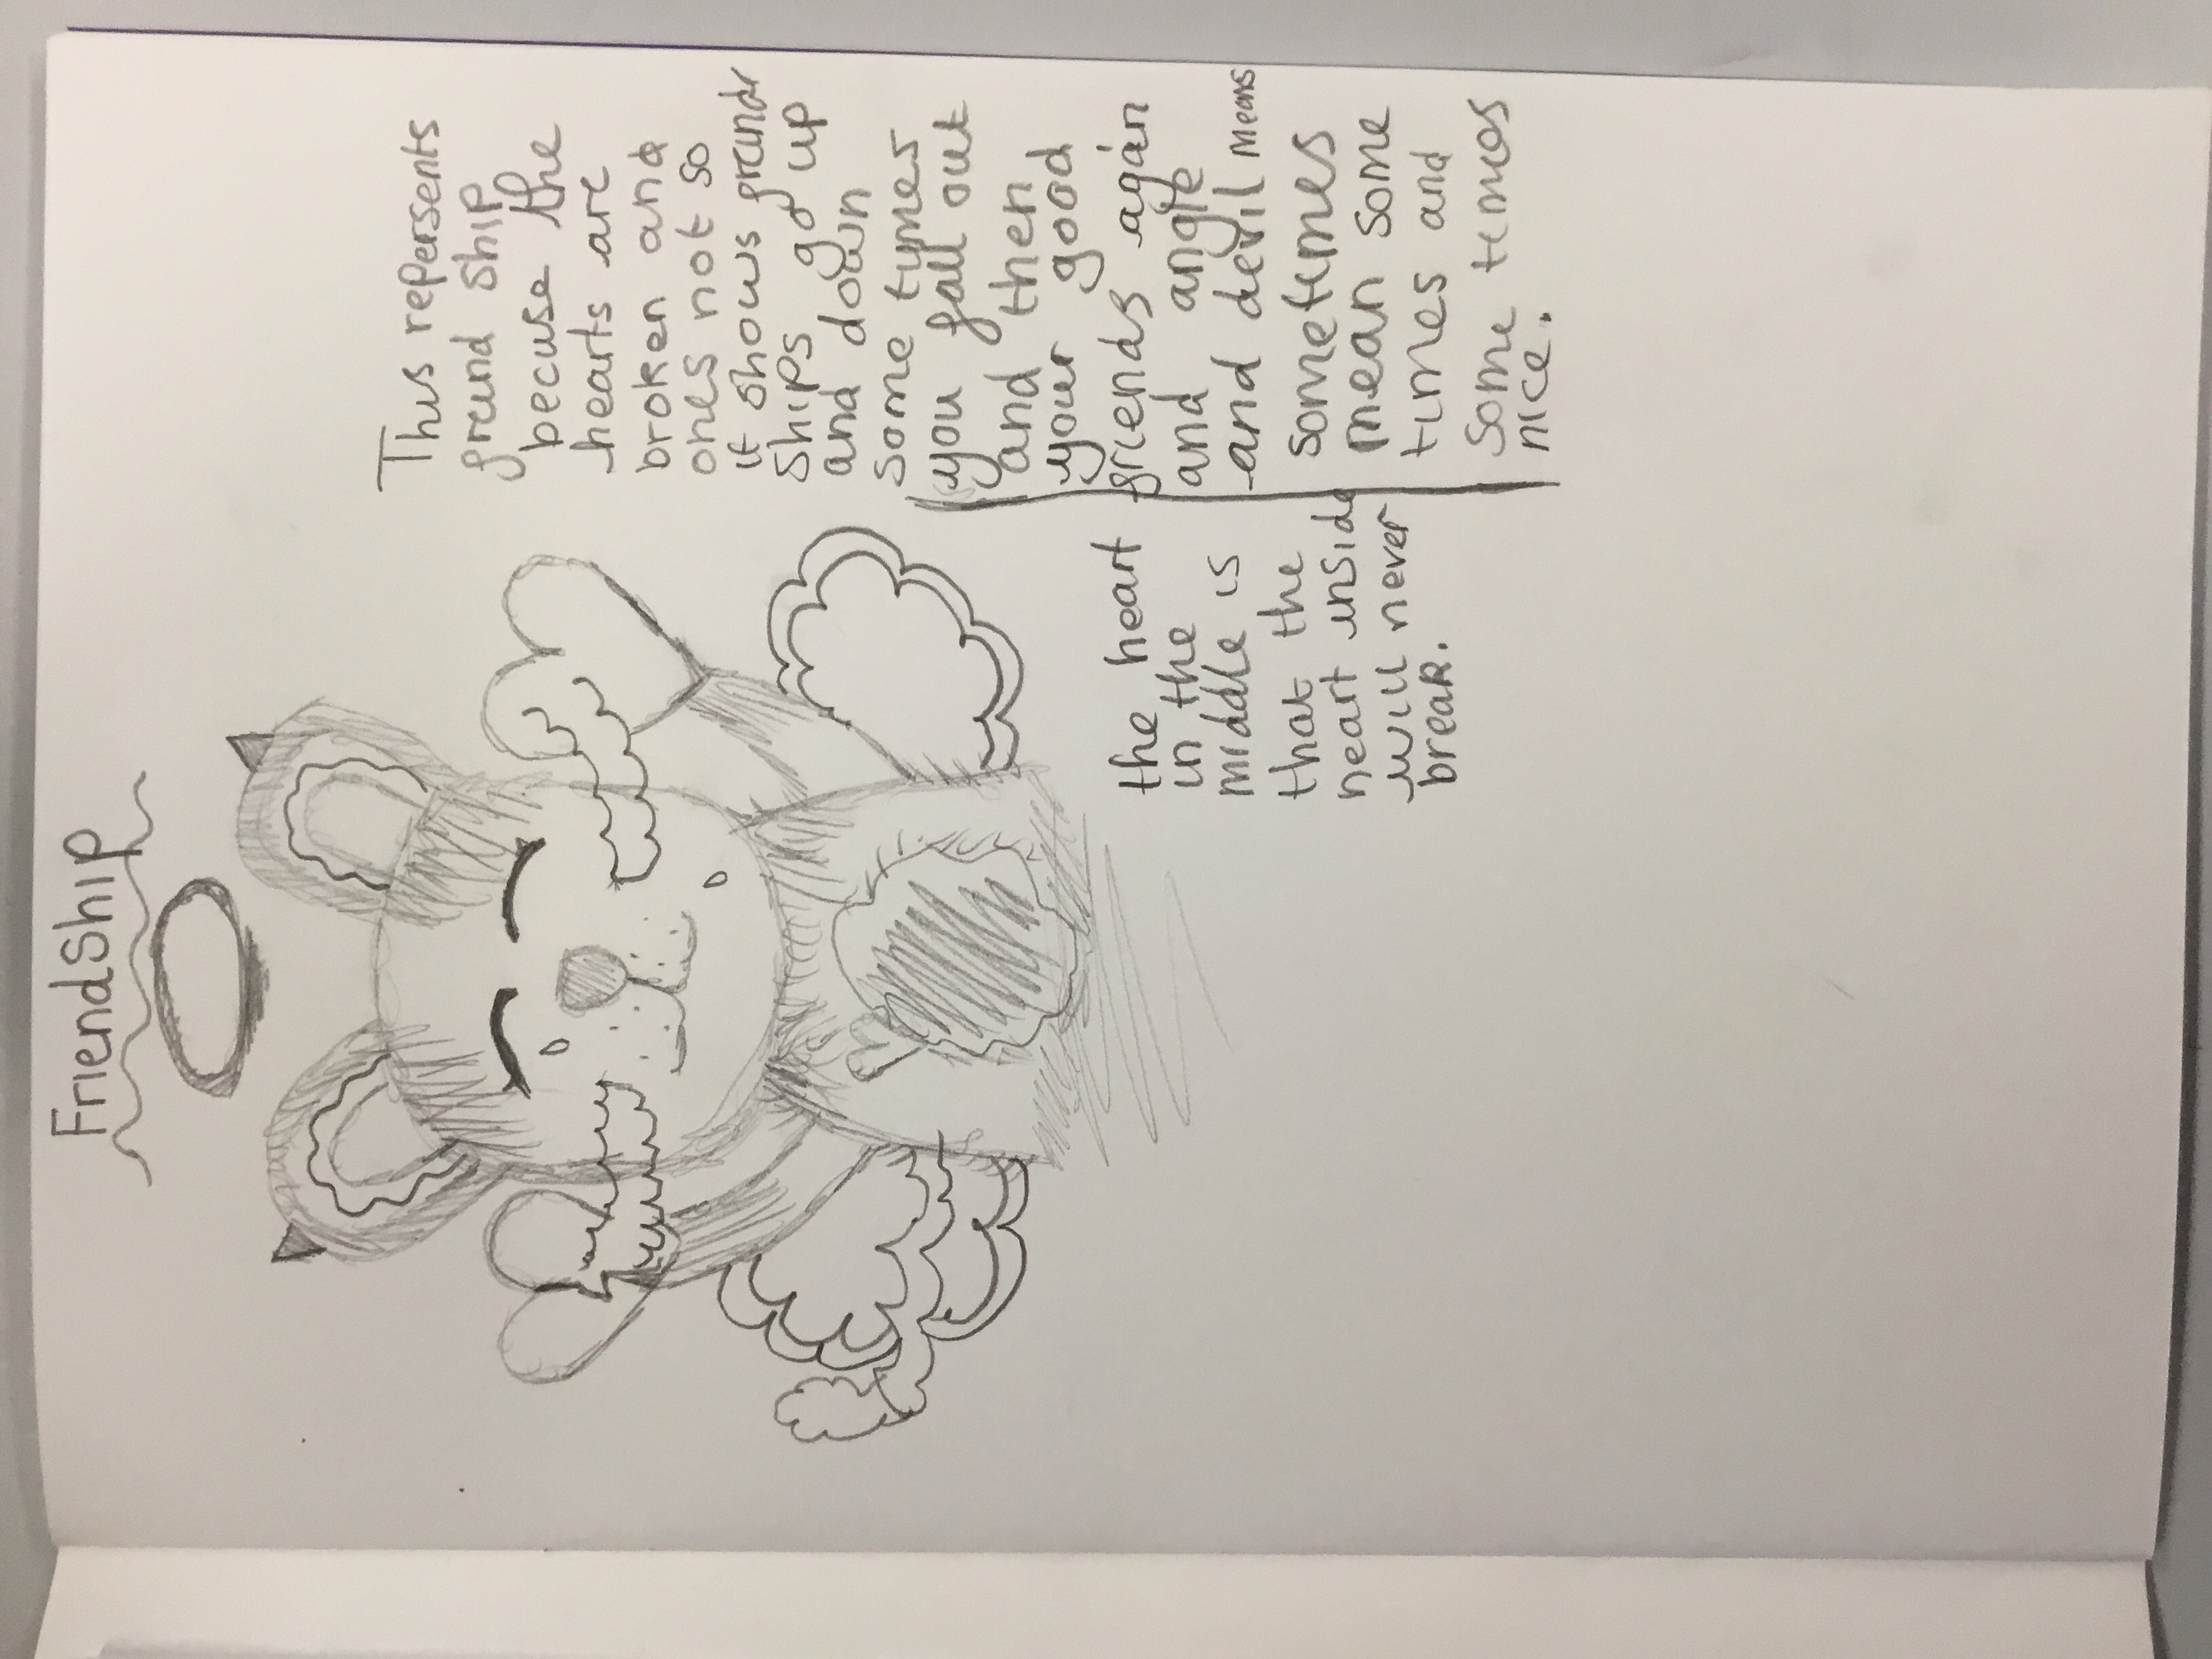 Friendship
This repersents
freind ship
becuse the
hearts are
broken and
ones not so
it shows freindr
ships go up
and down
some tymes
you fall out
and then
your good
friends agan
and angle
and devil means
sometimes
mean some
times and
Some times
nice.
the heart
in the
middle is
that the
heart inside
will never
break.